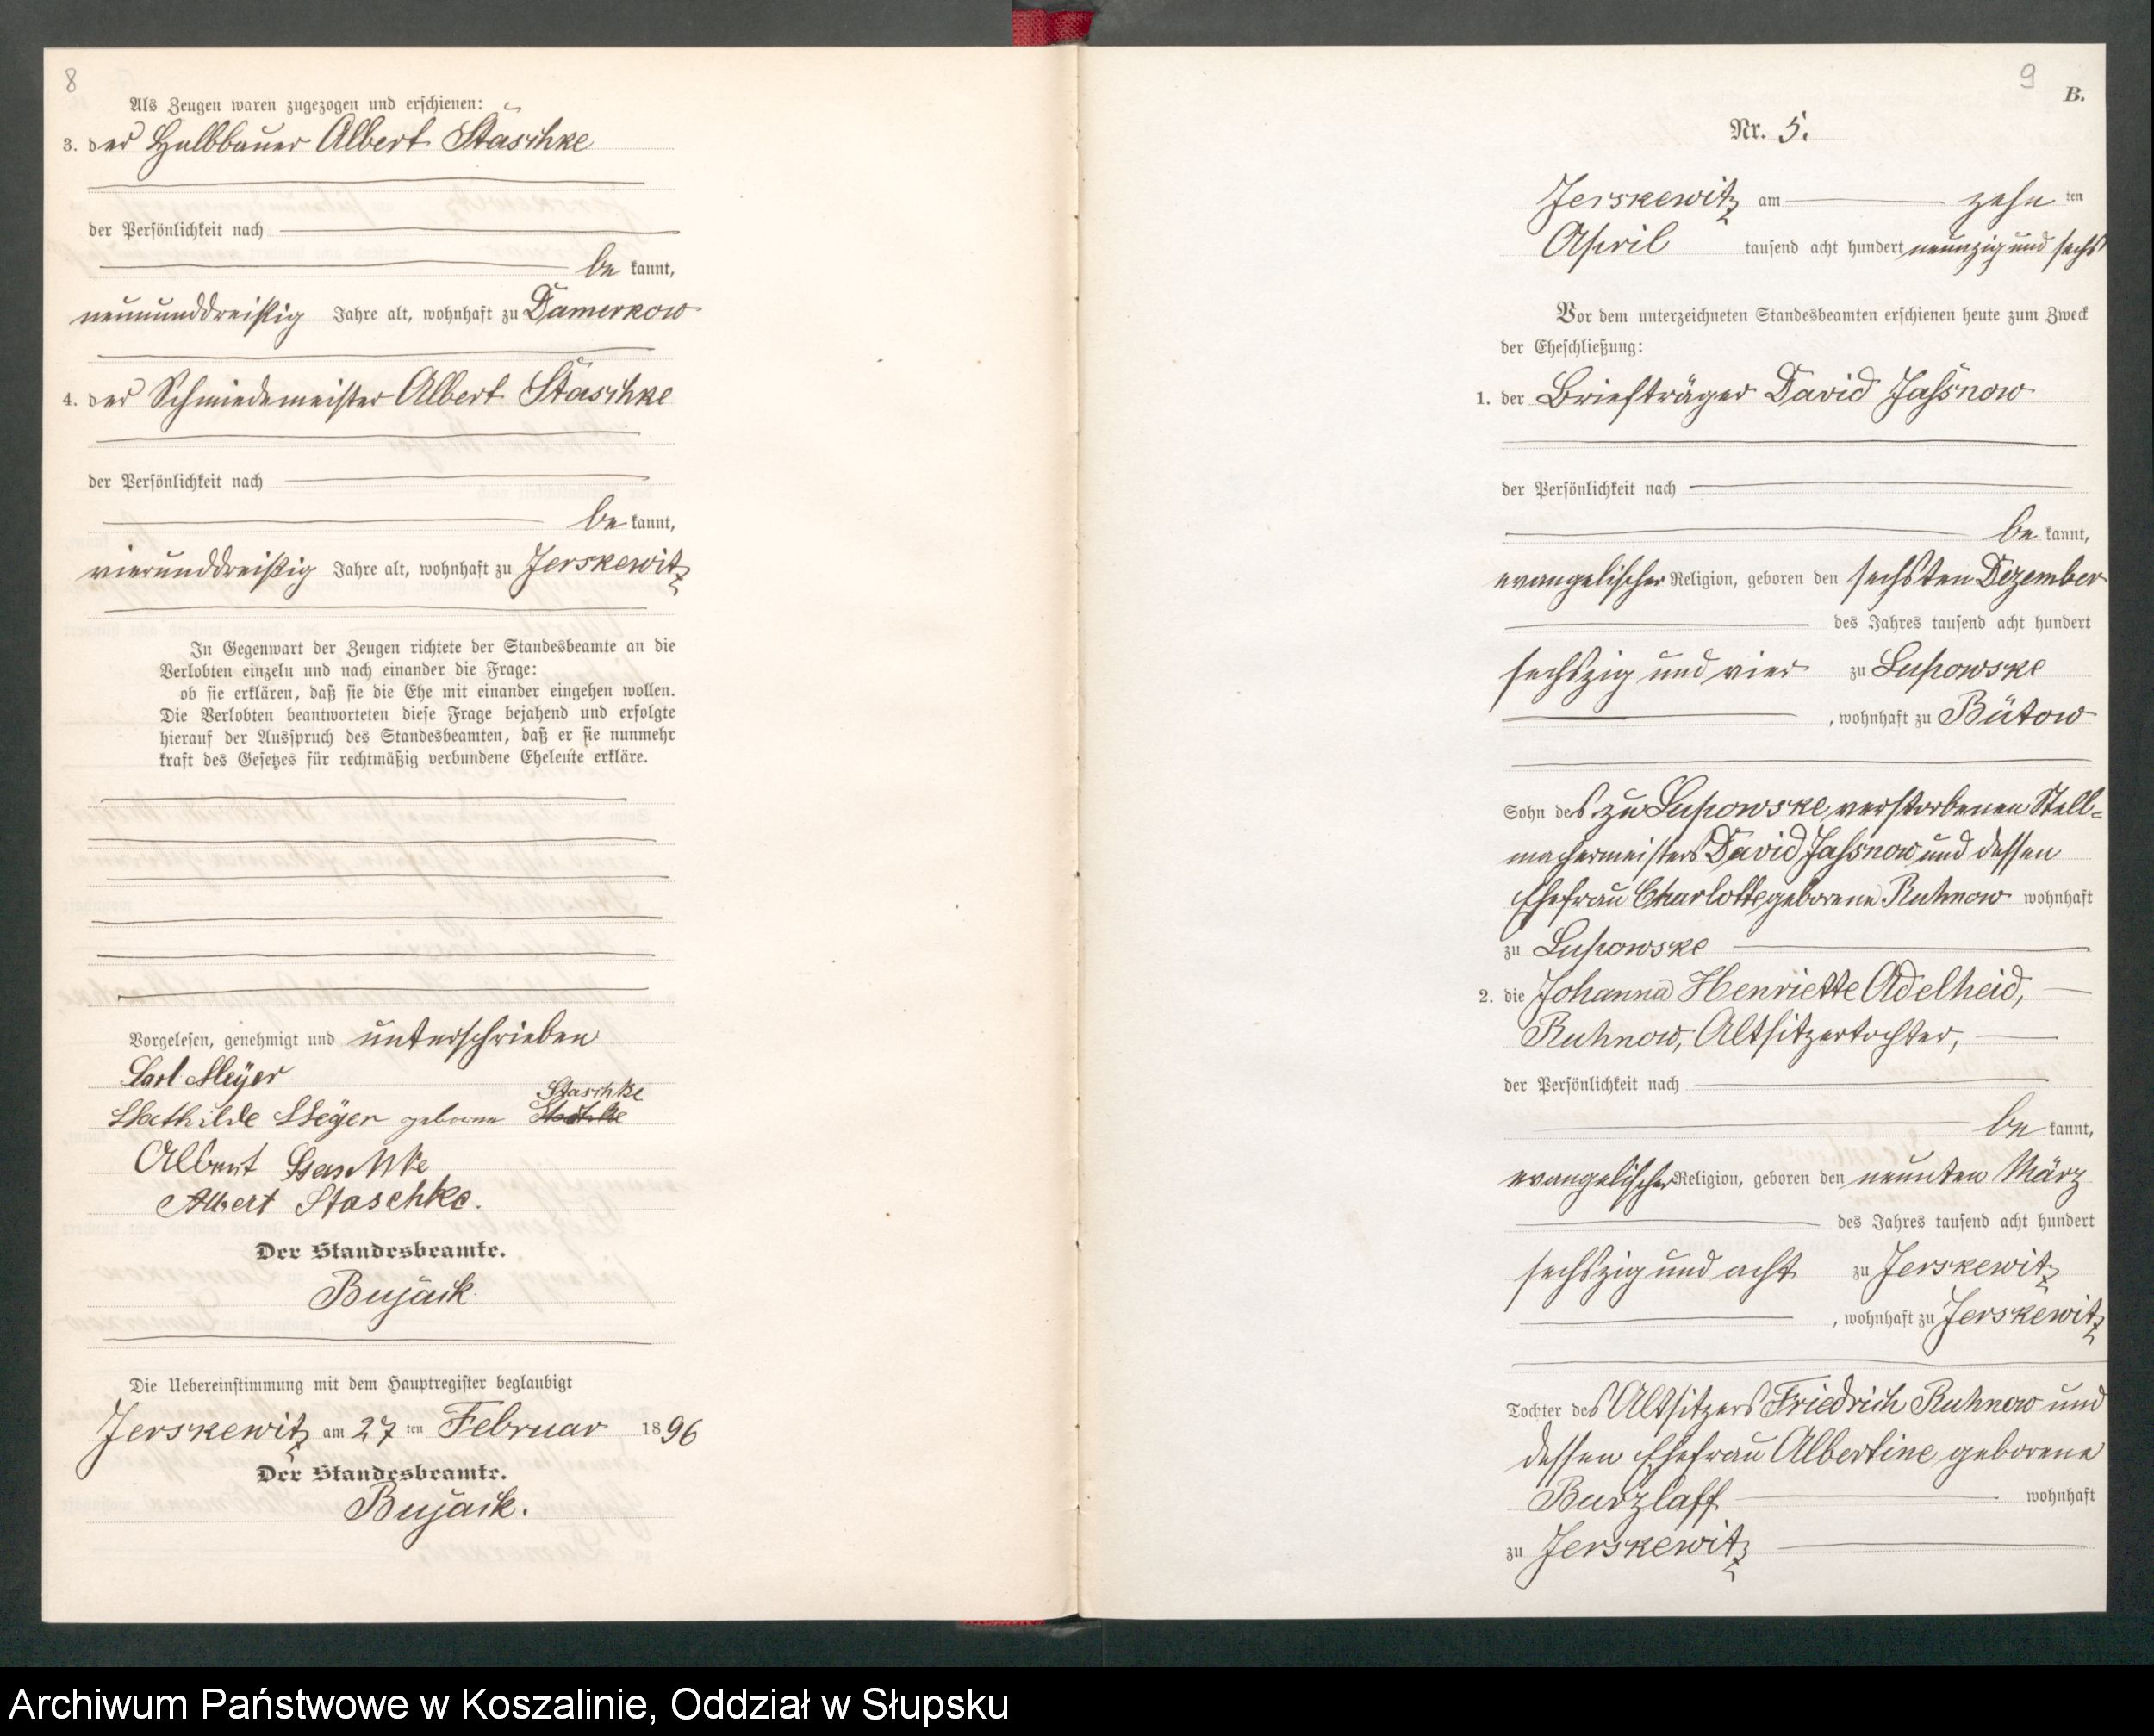 8
Als Zeugen waren zugezogen und erschienen:
3. der Halbbauer Albert Staschke
der Persönlichkeit nach
be kannt,
neununddreißig Jahre alt, wohnhaft zu Damerkow
4. der Schmiedemeister Albert Staschke
der Persönlichkeit nach
be kannt,
vierunddreißig Jahre alt, wohnhaft zu Jerskewitz
In Gegenwart der Zeugen richtete der Standesbeamte an die
Verlobten einzeln und nach einander die Frage:
ob sie erklären, daß sie die Ehe mit einander eingehen wollen.
Die Verlobten beantworteten diese Frage bejahend und erfolgte
hierauf der Ausspruch des Standesbeamten, daß er sie nunmehr
kraft des Gesetzes für rechtmäßig verbundene Eheleute erkläre.
Vorgelesen, genehmigt und unterschrieben
Carl Meÿer
Staschke
Mathilde Meÿer geborene
Albert Staschke
Albert Staschke.
Der Standesbeamte.
Bujack
Die Uebereinstimmung mit dem Hauptregister beglaubigt
Jerskewitz am 27 ten Februar 1896
Der Standesbeamte.
Bujack.
9
B.
Nr. 5.
Jerskewitz am zehn ten
April tausend acht hundert neunzig und sechs
Vor dem unterzeichneten Standesbeamten erschienen heute zum Zweck
der Eheschließung:
1. der Briefträger David Jaßnow
der Persönlichkeit nach
be kannt,
evangelischer Religion, geboren den sechsten Dezember
des Jahres tausend acht hundert
sechszig und vier zu Lupowske
, wohnhaft zu Bütow
Sohn des zu Lupowske verstorbenen Stell=
machermeisters David Jaßnow und dessen
Ehefrau Charlotte geborene Ruhnow wohnhaft
zu Lupowske
2. die Johanna Henriette Adelheid,
Ruhnow, Altsitzertochter,
der Persönlichkeit nach
be kannt,
evangelischer Religion, geboren den neunten März
des Jahres tausend acht hundert
sechszig und acht zu Jerskewitz
, wohnhaft zu Jerskewitz
Tochter des Altsitzers Friedrich Ruhnow und
dessen Ehefrau Albertine geborene
Burzlaff wohnhaft
zu Jerskewitz
Archiwum Państwowe w Koszalinie, Oddział w Słupsku